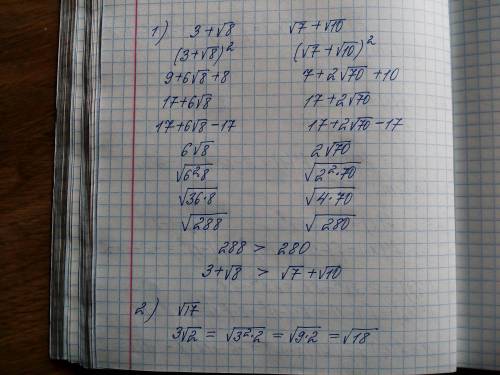 1) 3+√8 √7+√10
(3+√8)² (√7+√10)²
9+6√8+8 7+2√70+10
17+6√8 17+2√70
17+6√8-17 17+2√70-17
6√8 2√70
√6²8 √2²·70
√36·8 √4·70
√288 √280
288 > 280
3+√8 > √7+√10
2) √17
3√2 = √3²·2 = √9·2 = √18